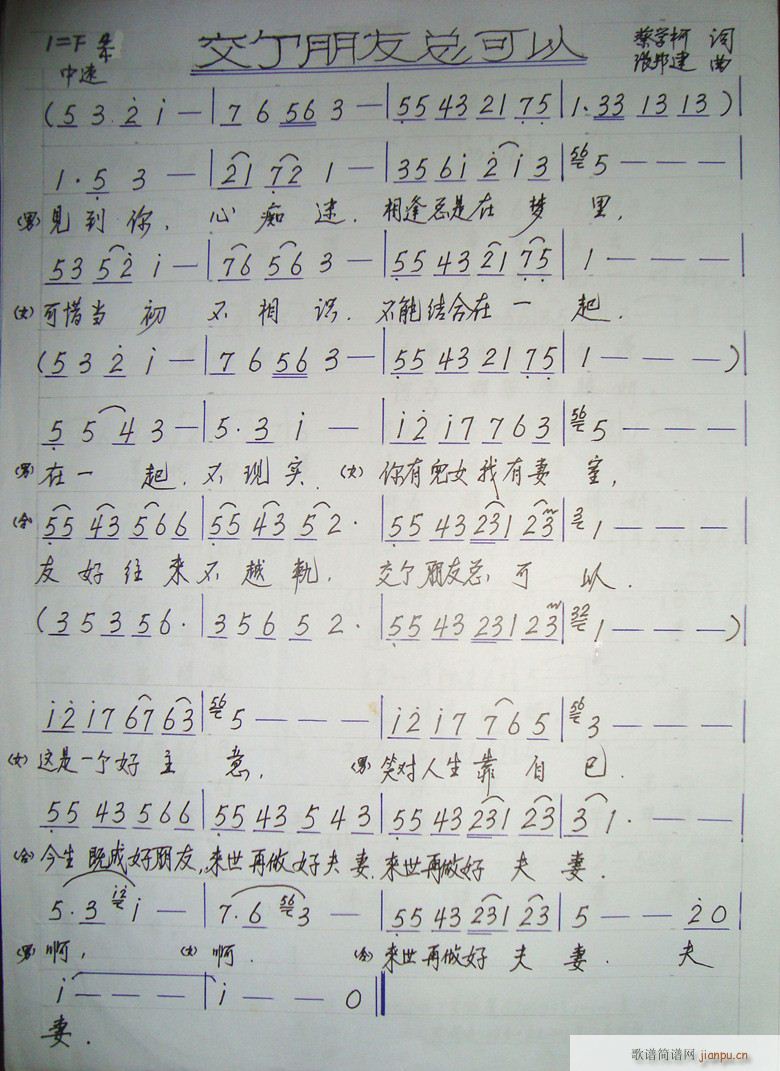 1=F 4/4 交了朋友总可以 蔡学柯 词
中速 邦建 曲
(5 3 2 i — | 7 6 56 3 — | 55 43 21 75 | 1. 33 13 13 )
1 . 5 3 — | 21 72 1 — | 356i 2 i 3 | 56 5 — — —
(男) 见到你, 心痴迷. 相逢总是在梦里,
53 52 i — | 76 56 3 — | 55 43 21 75 | 1 — — —
(女) 可惜当初不相识. 不能结合在一起.
(5 3 2 i — | 7 6 56 3 — | 55 43 21 75 | 1 — — — )
5 5 4 3 — | 5 . 3 i — | i2 i7 7 6 3 | 56 5 — — —
(男) 在一起. 不现实. (女) 你有儿女我有妻室,
(合) 55 43 566 | 55 43 5 2 . | 55 43 231 23 | 2 1 — — —
友好往来不越軌. 交了朋友总可以.
(3 5 3 5 6 . | 3 5 6 5 2 . | 55 43 231 23 | 32 1 — — — )
i2 i7 67 63 | 56 5 — — — | i2 i7 7 6 5 | 56 3 — — —
(女) 这是一个好主意, (男) 笑对人生靠自己.
55 43 566 | 55 43 5 4 3 | 55 43 231 23 | 3 1 . — —
(合) 今生既成好朋友, 来世再做好夫妻. 来世再做好夫妻.
5 . 3 i2 i — | 7 . 6 56 3 — | 55 43 231 23 | 5 — — 2 0
(男) 啊, (女) 啊. (合) 来世再做好夫妻. 夫
i — — — | i — — 0
妻.
歌谱简谱网 jianpu.cn